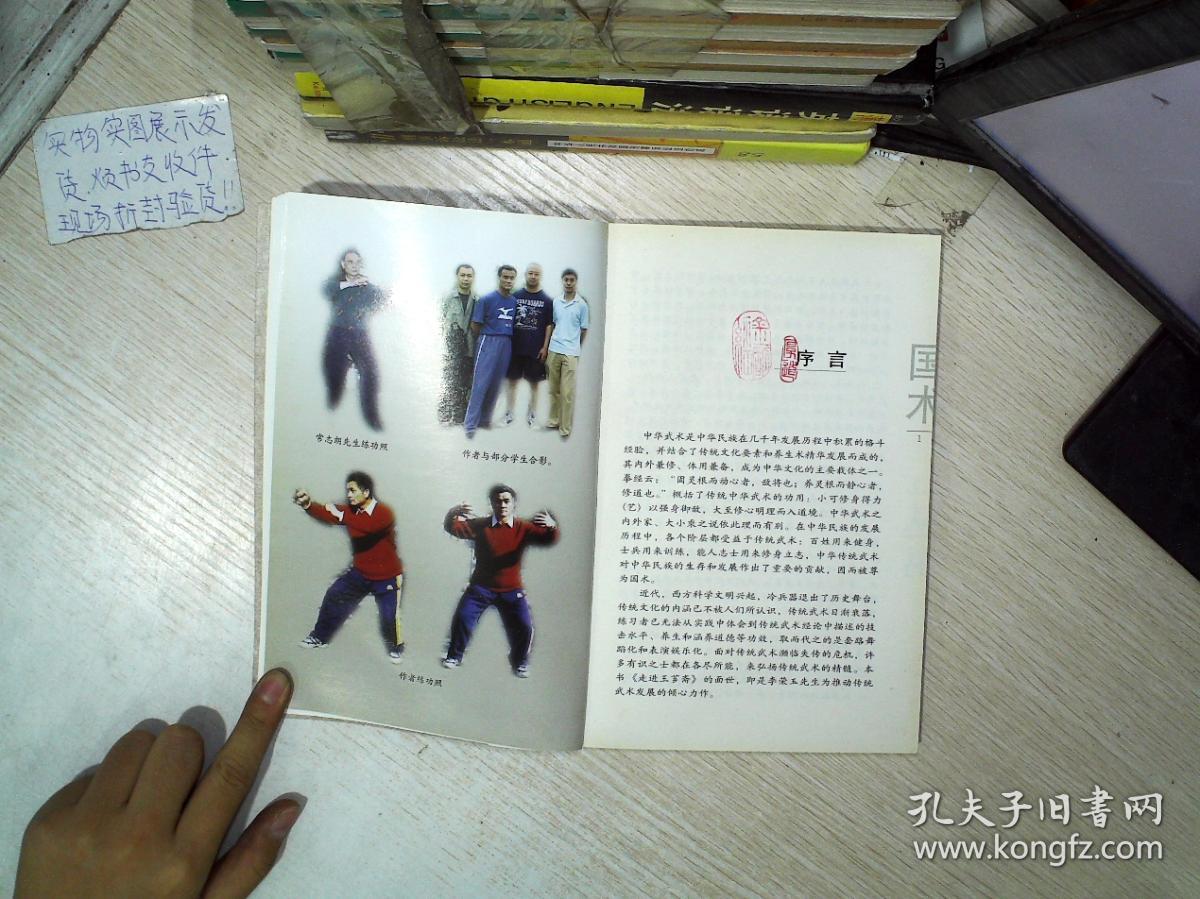 实物实图展示发
货.烦书友收件.
现场拆封验货!!
常志朗先生练功照
作者与部分学生合影。
作者练功照
序言
国术
1
中华武术是中华民族在几千年发展历程中积累的格斗
经验，并结合了传统文化要素和养生术精华发展而成的，
其内外兼修、体用兼备，成为中华文化的主要载体之一。
拳经云：“固灵根而动心者，敌将也；养灵根而静心者，
修道也。”概括了传统中华武术的功用：小可修身得力
（艺）以强身御敌，大至修心明理而入道境。中华武术之
内外家、大小乘之说依此理而有别。在中华民族的发展
历程中，各个阶层都受益于传统武术：百姓用来健身，
士兵用来训练，能人志士用来修身立志，中华传统武术
对中华民族的生存和发展作出了重要的贡献，因而被尊
为国术。
近代，西方科学文明兴起，冷兵器退出了历史舞台，
传统文化的内涵已不被人们所认识，传统武术日渐衰落，
练习者已无法从实践中体会到传统武术经论中描述的技
击水平、养生和涵养道德等功效，取而代之的是套路舞
蹈化和表演娱乐化。面对传统武术濒临失传的危机，许
多有识之士都在各尽所能，来弘扬传统武术的精髓。本
书《走进王芗斋》的面世，即是李荣玉先生为推动传统
武术发展的倾心力作。
孔夫子旧书网
www.kongfz.com